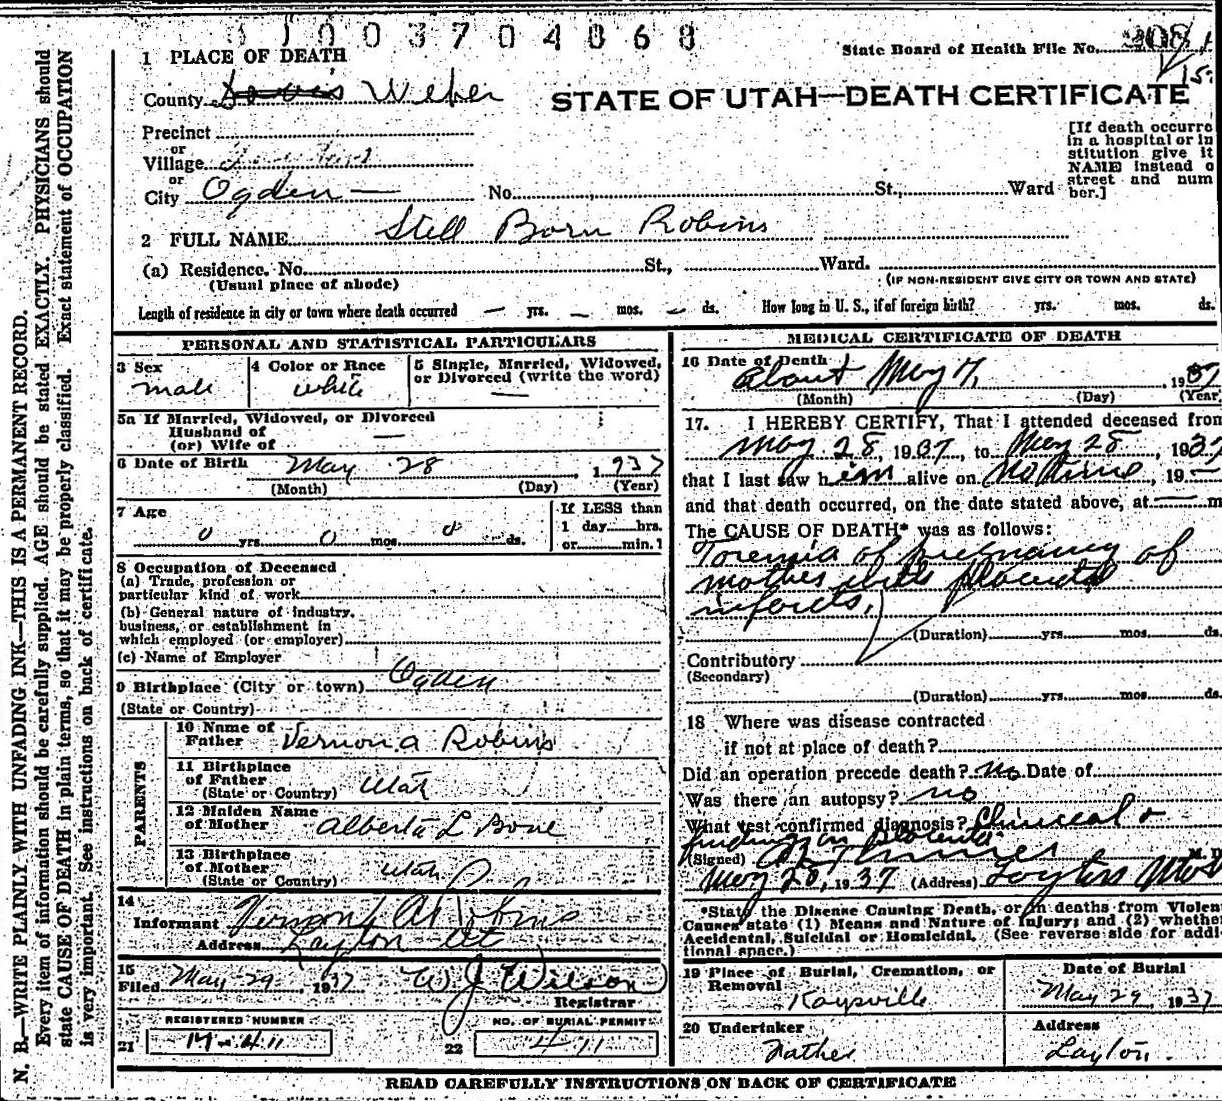 1 1 0 0 3 7 0 4 0 6 8
State Board of Health File No. 308
1 PLACE OF DEATH
County Davis Weber
STATE OF UTAH—DEATH CERTIFICATE
Precinct
or
Village
or
City Ogden — No. St., Ward
[If death occurre
in a hospital or in
stitution give it
NAME instead o
street and num
ber.]
2 FULL NAME Still Born Robins
(a) Residence. No. St., Ward.
(Usual place of abode) (IF NON-RESIDENT GIVE CITY OR TOWN AND STATE)
Length of residence in city or town where death occurred — yrs. — mos. — ds. How long in U. S., if of foreign birth? yrs. mos. ds.
PERSONAL AND STATISTICAL PARTICULARS
3 Sex 4 Color or Race 5 Single, Married, Widowed,
or Divorced (write the word)
male white —
5a If Married, Widowed, or Divorced
Husband of
(or) Wife of —
6 Date of Birth May 28, 1937
(Month) (Day) (Year)
7 Age If LESS than
1 day hrs.
0 yrs. 0 mos. 0 ds. or min.
8 Occupation of Deceased
(a) Trade, profession or
particular kind of work
(b) General nature of industry,
business, or establishment in
which employed (or employer)
(c) Name of Employer
9 Birthplace (City or town) Ogden
(State or Country)
PARENTS
10 Name of
Father Vernon A Robins
11 Birthplace
of Father Utah
(State or Country)
12 Maiden Name
of Mother Alberta L Bone
13 Birthplace
of Mother Utah
(State or Country)
14
Informant Vernon A Robins
Address Layton Ut
15
Filed May 29 1937 W J Wilson
Registrar
REGISTERED NUMBER NO. OF BURIAL PERMIT
21 M-411 22 411
MEDICAL CERTIFICATE OF DEATH
16 Date of Death
About May 7, 1937
(Month) (Day) (Year
17. I HEREBY CERTIFY, That I attended deceased from
May 28, 1937, to May 28, 1937
that I last saw him alive on no time, 19—
and that death occurred, on the date stated above, at — m
The CAUSE OF DEATH* was as follows:
Toxemia of pregnancy of
mother with placental
infarcts.
(Duration) yrs. mos. ds.
Contributory
(Secondary)
(Duration) yrs. mos. ds.
18 Where was disease contracted
if not at place of death?
Did an operation precede death? No Date of
Was there an autopsy? no
What test confirmed diagnosis? Clinical &
findings in placenta.
(Signed) M. D.
May 28, 1937 (Address) Layton Utah
*State the Disease Causing Death, or in deaths from Violen
Causes state (1) Means and Nature of Injury; and (2) whethe
Accidental, Suicidal or Homicidal. (See reverse side for addi
tional space.)
19 Place of Burial, Cremation, or
Removal Date of Burial
Kaysville May 29, 1937
20 Undertaker Address
Father Layton.
READ CAREFULLY INSTRUCTIONS ON BACK OF CERTIFICATE
N. B.—WRITE PLAINLY WITH UNFADING INK—THIS IS A PERMANENT RECORD.
Every item of information should be carefully supplied. AGE should be stated EXACTLY. PHYSICIANS should
state CAUSE OF DEATH in plain terms, so that it may be properly classified. Exact statement of OCCUPATION
is very important. See instructions on back of certificate.